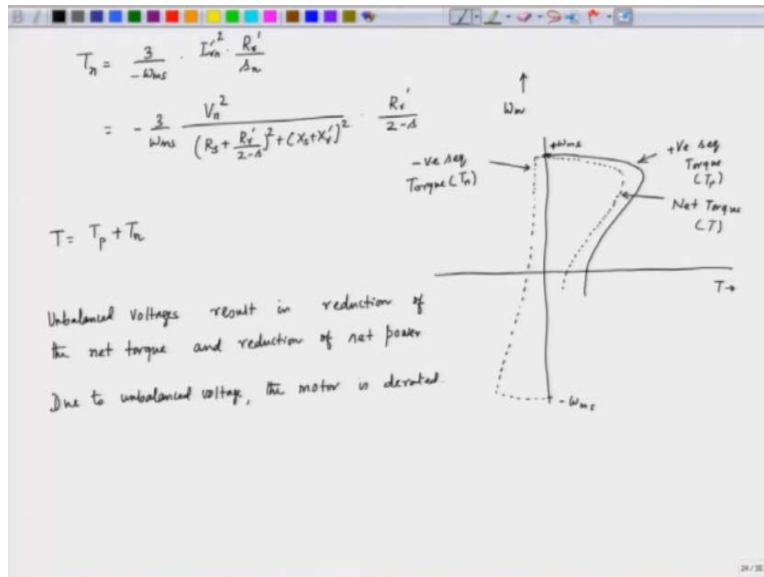 T_n = 3/-ω_ms · I'_rn^2 · R_r'/s_n
= - 3/ω_ms V_n^2/((R_s + R_r'/2-s)^2 + (X_s+X_r')^2) · R_r'/2-s
T = T_p + T_n
Unbalanced voltages result in reduction of
the net torque and reduction of net power
Due to unbalanced voltage, the motor is derated.
ω_m
+ω_ms
-ve seq
Torque (T_n)
+ve seq
Torque
(T_p)
Net Torque
(T)
T→
-ω_ms
24/30